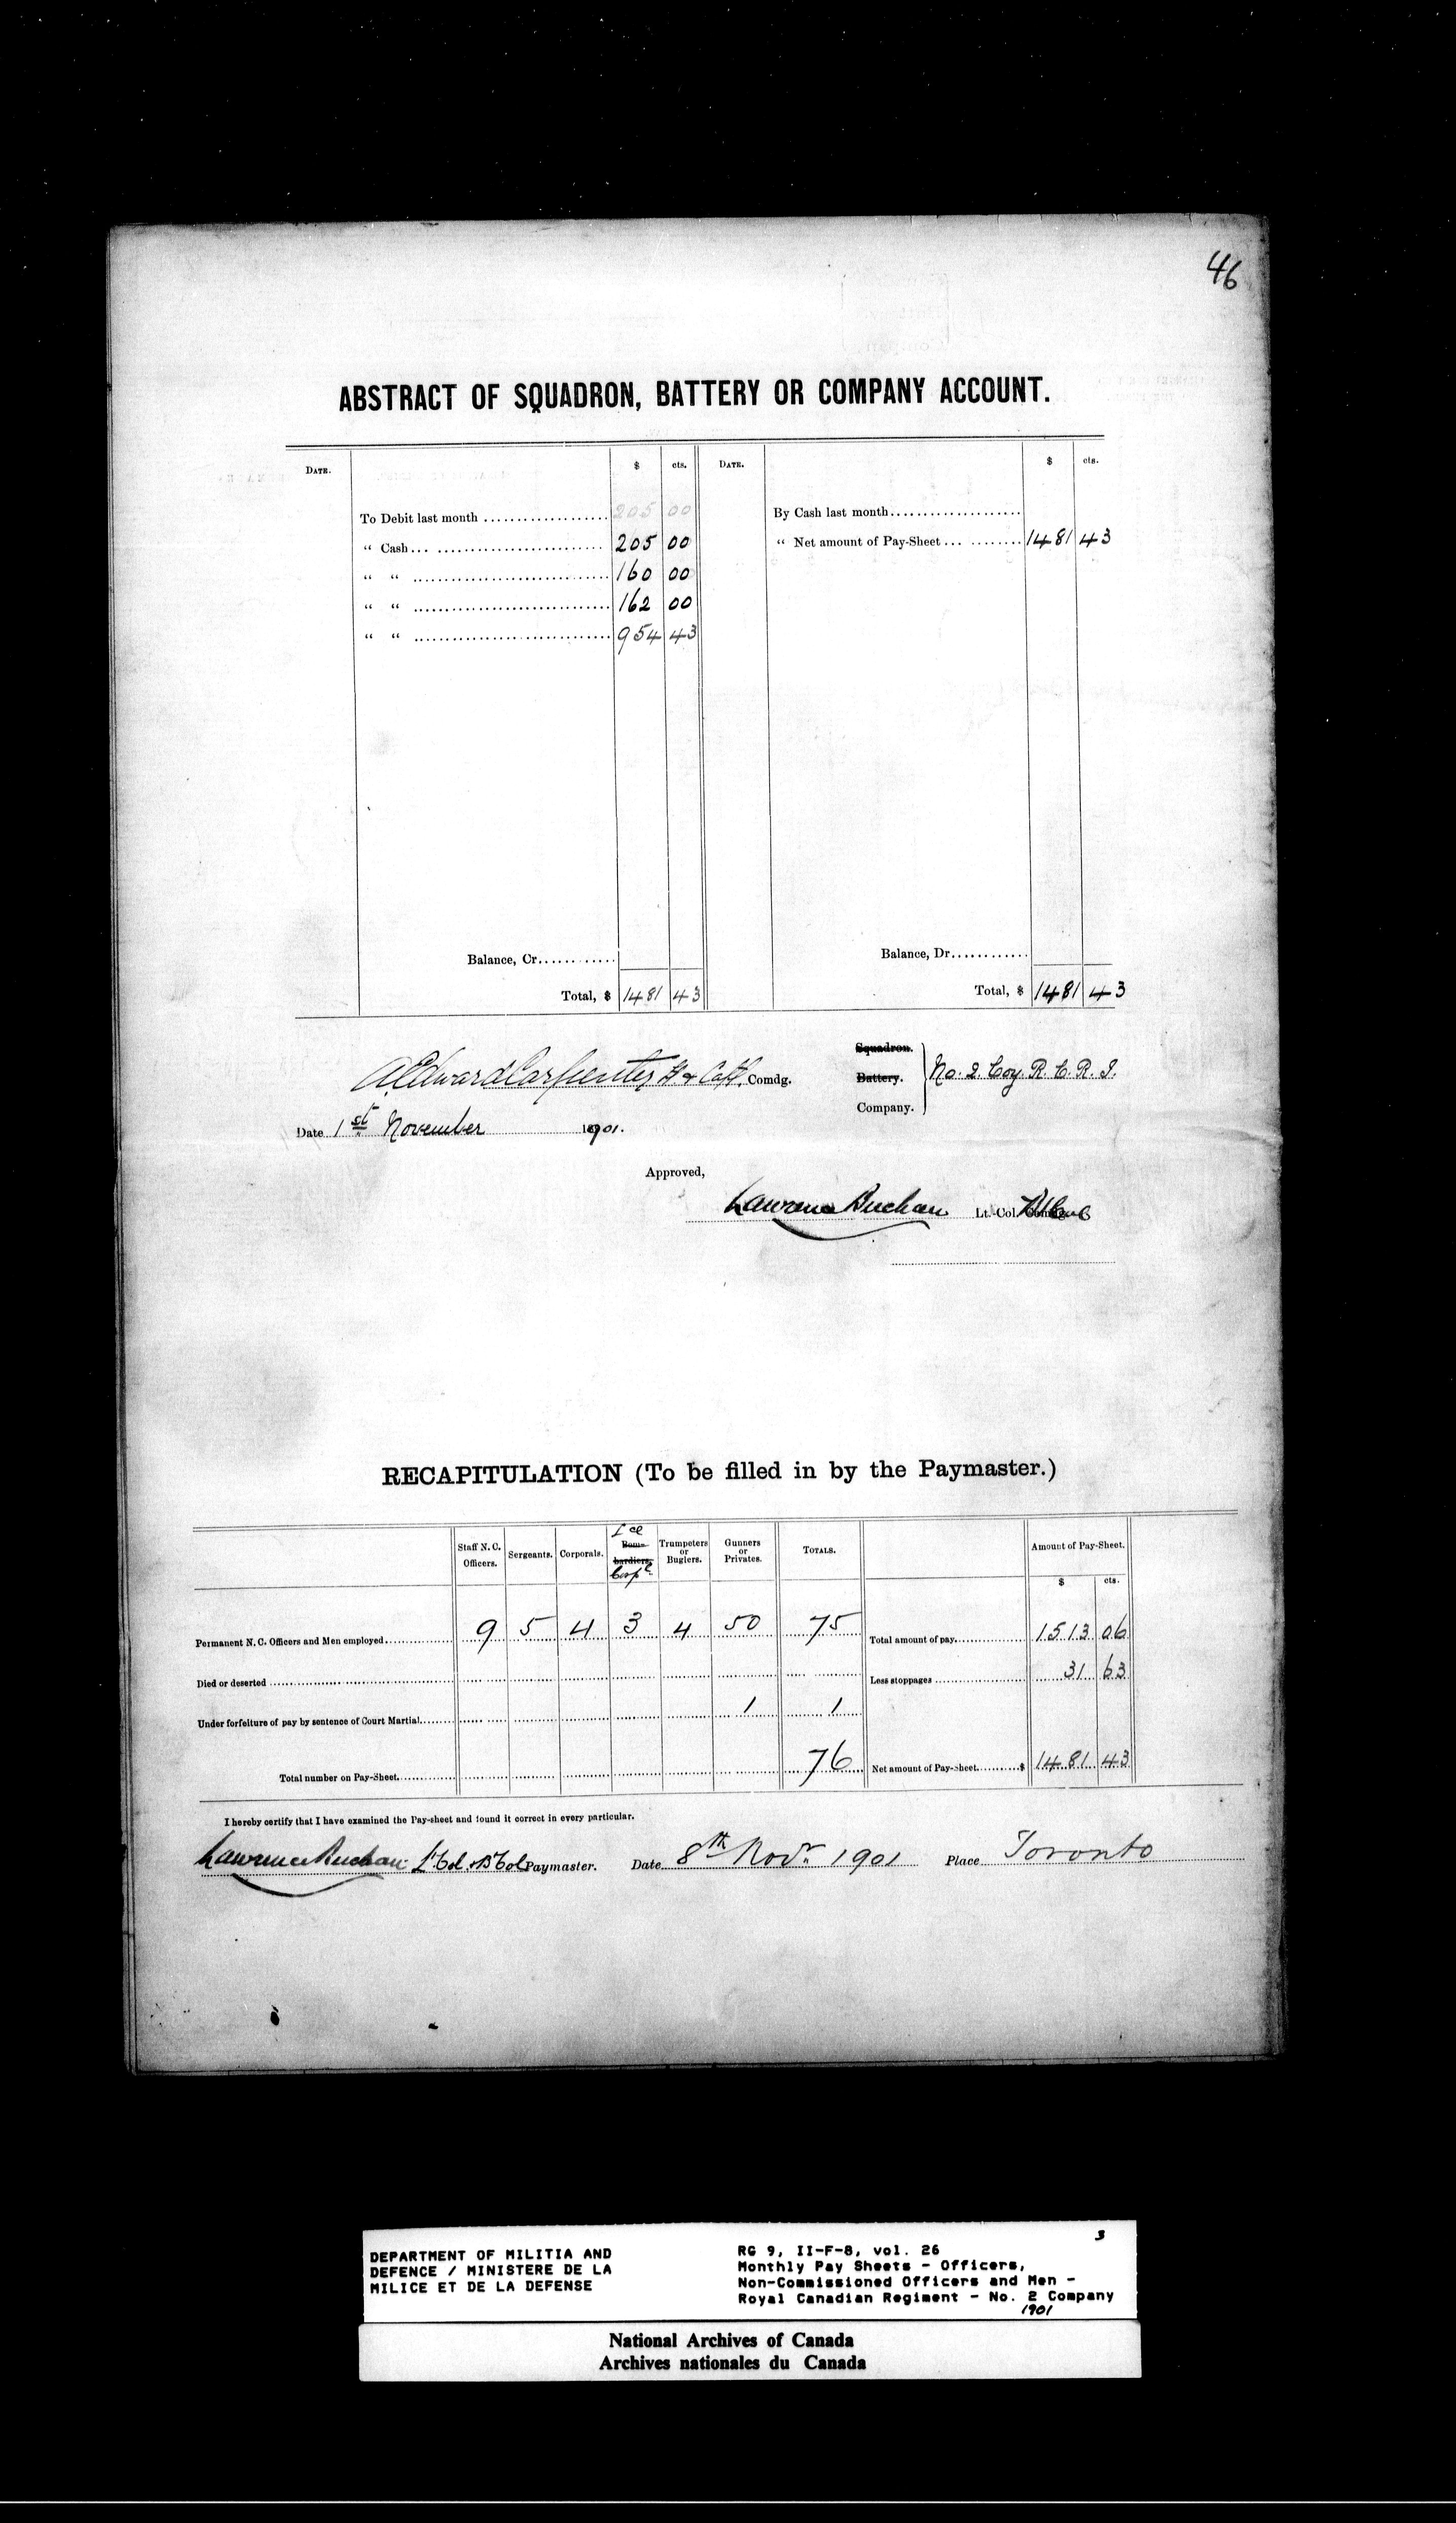 46
ABSTRACT OF SQUADRON, BATTERY OR COMPANY ACCOUNT.
DATE. $ cts. DATE. $ cts.
To Debit last month ................... 205 00 By Cash last month...................
“ Cash... ......................... 205 00 “ Net amount of Pay-Sheet ... ........ 1481 43
“ “ ............................. 160 00
“ “ ............................. 162 00
“ “ ............................. 954 43
Balance, Cr........... Balance, Dr............
Total, $ 1481 43 Total, $ 1481 43
AEdward Carpenter Comdg.
Squadron.
Battery.
Company.
No. 2 Coy. R. C. R. I.
Date 1st November 1901.
Approved,
Lawrence Buchan Lt.-Col.
RECAPITULATION (To be filled in by the Paymaster.)
Staff N. C. Officers. Sergeants. Corporals. Lce Bombardiers, Corpl Trumpeters or Buglers. Gunners or Privates. TOTALS. Amount of Pay-Sheet.
$ cts.
Permanent N. C. Officers and Men employed.............. 9 5 4 3 4 50 75 Total amount of pay.............. 1513 06
Died or deserted .............................. Less stoppages .............. 31 63
Under forfeiture of pay by sentence of Court Martial........ 1 1
Total number on Pay-Sheet.............. 76 Net amount of Pay-sheet..........$ 1481 43
I hereby certify that I have examined the Pay-sheet and found it correct in every particular.
Lawrence Buchan Lt Col & Bt Col Paymaster. Date 8th Novr. 1901 Place Toronto
3
DEPARTMENT OF MILITIA AND
DEFENCE / MINISTERE DE LA
MILICE ET DE LA DEFENSE
RG 9, II-F-8, vol. 26
Monthly Pay Sheets - Officers,
Non-Commissioned Officers and Men -
Royal Canadian Regiment - No. 2 Company
1901
National Archives of Canada
Archives nationales du Canada